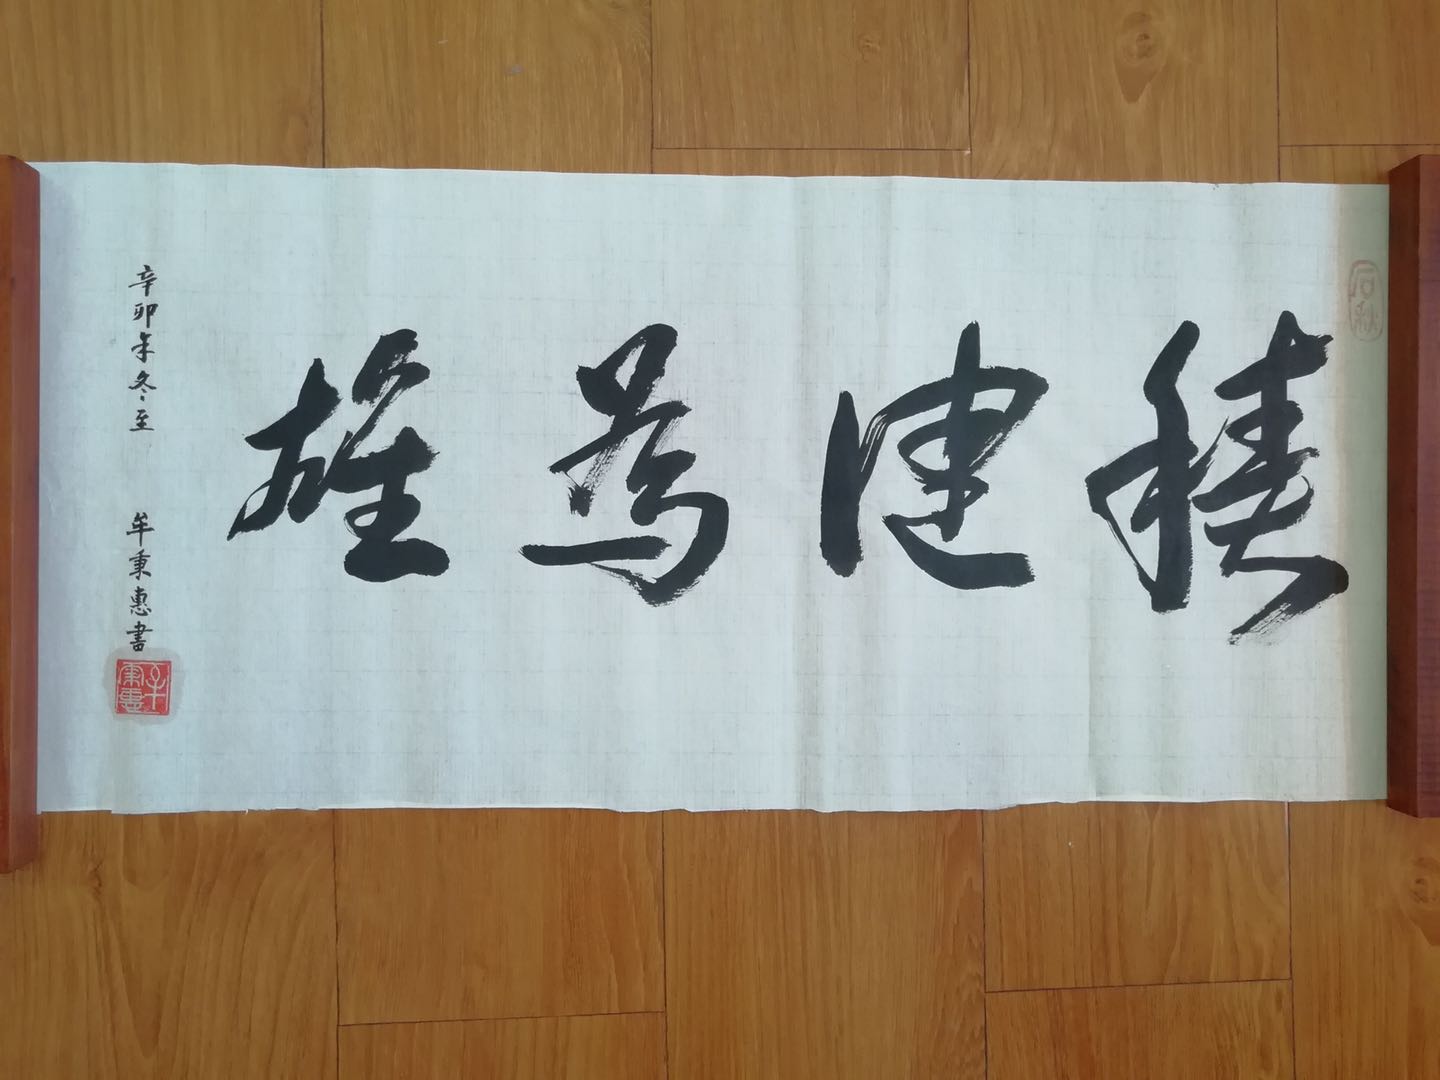 積健為雄
辛卯年冬至
牟秉惠書
牟秉惠